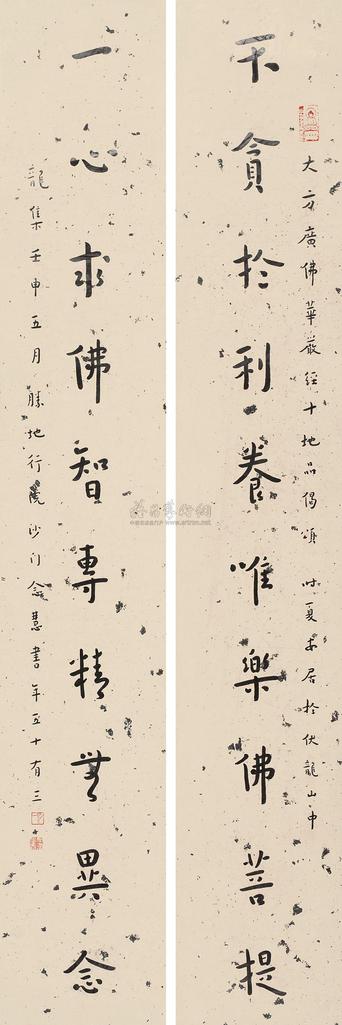 大方廣佛華嚴經十地品偈頌 時夏安居於伏龍山中
不貪於利養唯樂佛菩提
一心求佛智專精無異念
龍集壬申五月勝地行院沙門念慧書年五十有三